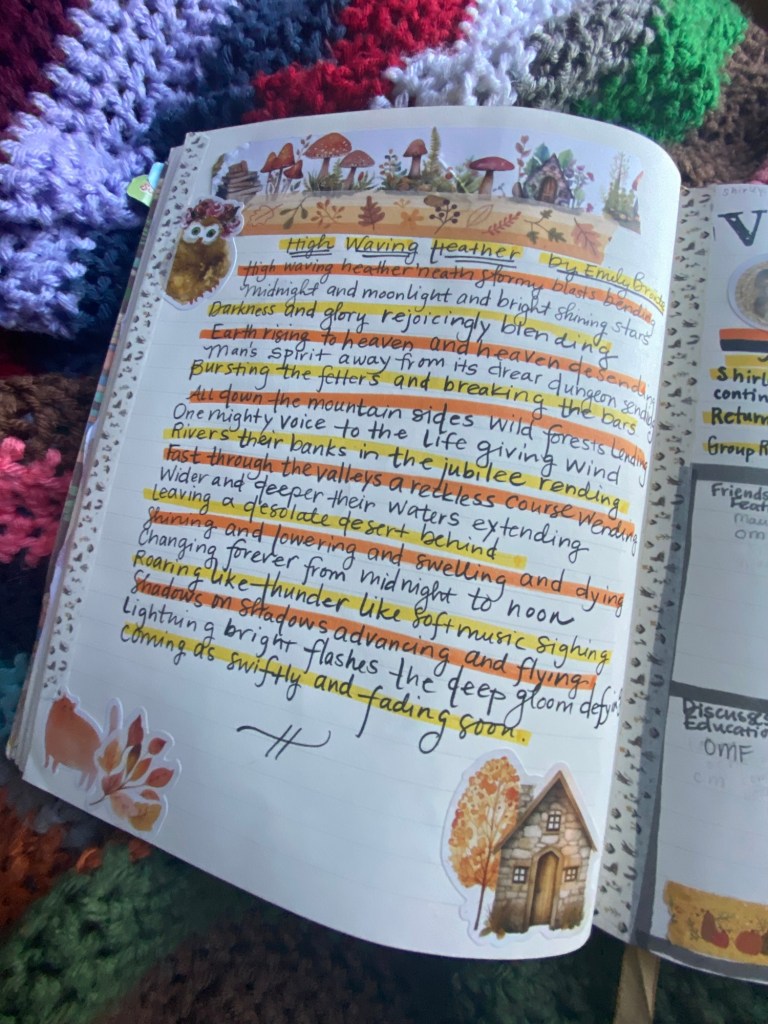 High Waving Heather by Emily Bronte
High waving heather 'neath stormy blasts bending
midnight and moonlight and bright shining stars
Darkness and glory rejoicingly blending
Earth rising to heaven and heaven desending
Man's spirit away from its drear dungeon sending
Bursting the fetters and breaking the bars
All down the mountain sides wild forests lending
One mighty voice to the life giving wind
Rivers their banks in the jubilee rending
Fast through the valleys a reckless course wending
Wider and deeper their waters extending
Leaving a desolate desert behind
Shining and lowering and swelling and dying
Changing forever from midnight to noon
Roaring like thunder like soft music sighing
Shadows on shadows advancing and flying
Lightning bright flashes the deep gloom defyi
Coming as swiftly and fading soon.
V
Shirl
contin
Return
Group R
Friends
Feat
mau
om
Discuss
Educatio
OMF
cm